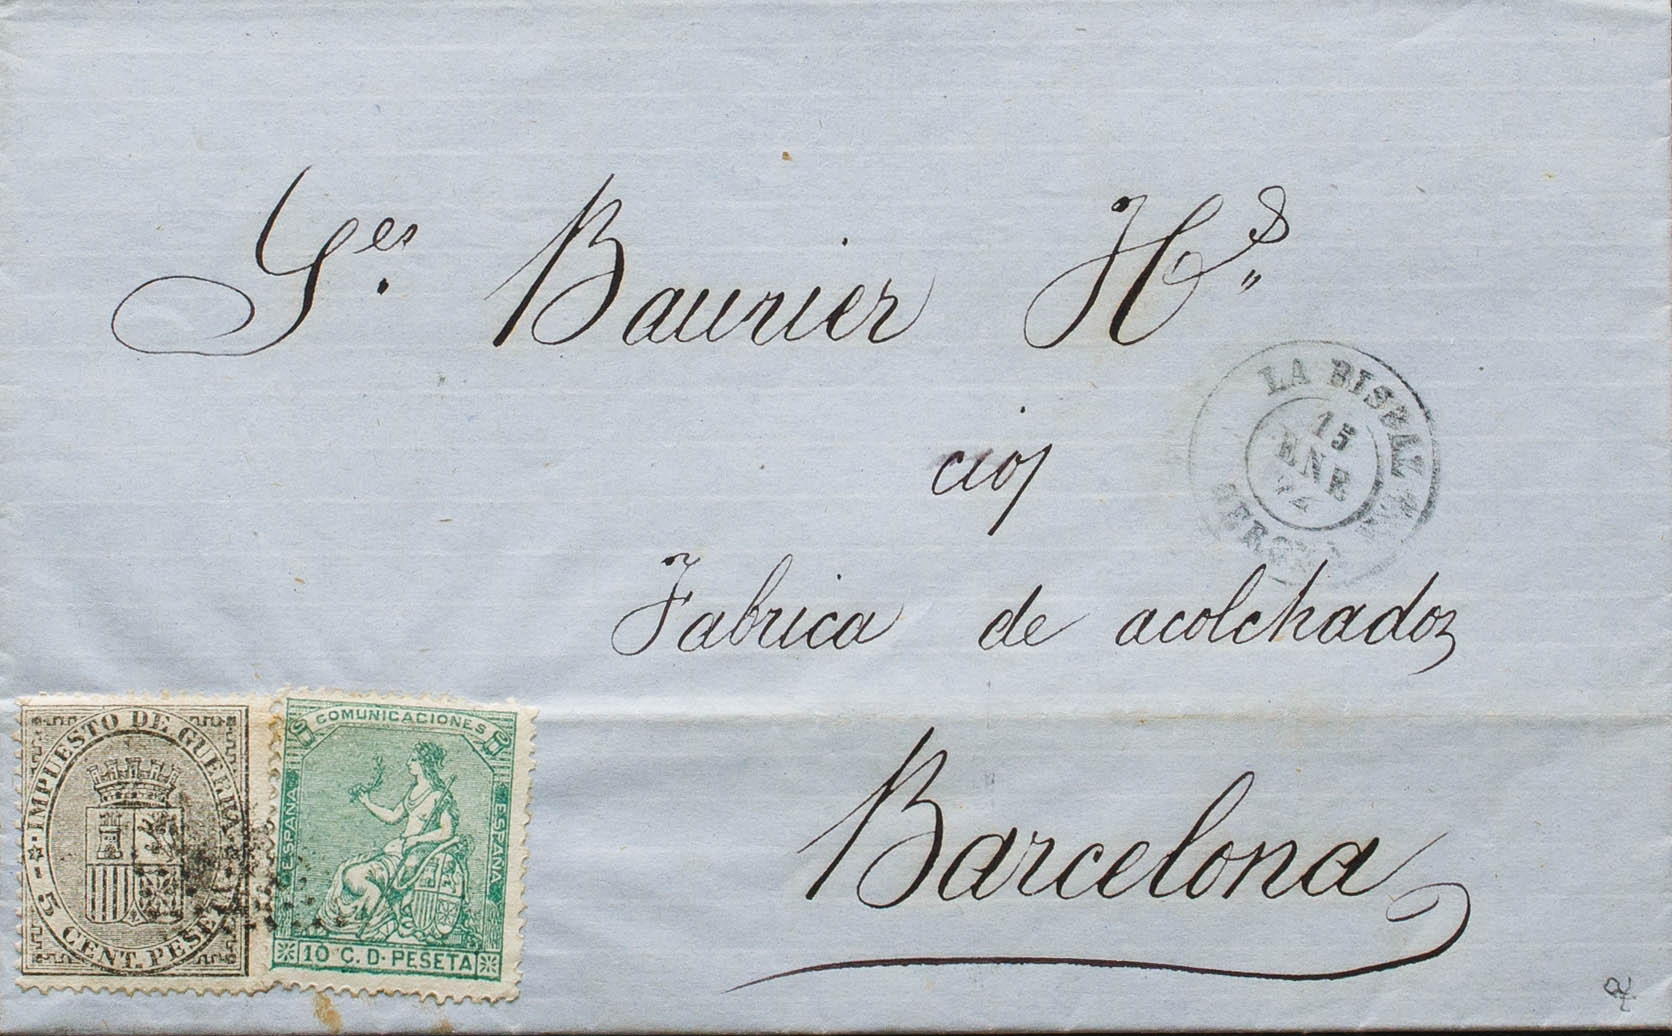 Sres. Baurier Hs.
Fabrica de acolchados
Barcelona
LA BISBAL
15
ENE
74
GERONA
IMPUESTO DE GUERRA
5 CENT. PESETA
COMUNICACIONES
ESPAÑA
ESPAÑA
10 C. D. PESETA